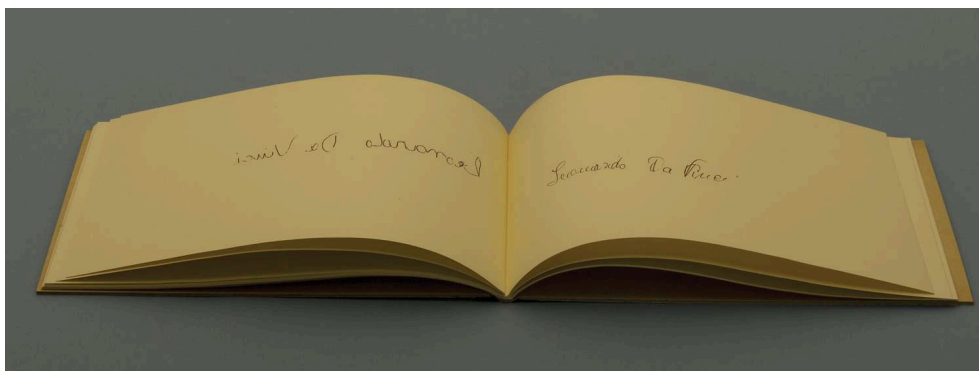 Leonardo Da Vinci
Leonardo Da Vinci.